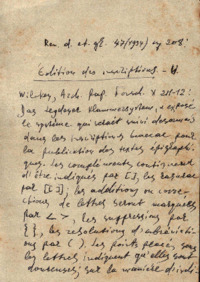 Rev. d. et. gr. 47 (1934) p. 208:
Edition des inscriptions. - U.
Wilcken, Arch. Pap. forsch. X 211-12:
Das Leydener Klammersystem, a exposé
le système qui serait suivi désormais
dans les inscriptiones Graecae pour
la publication des textes épigraphi-
ques. les compléments continuent
d'être indiqués par [], les rasurae
par [[ ]], les additions ou correc-
tions de lettres seront marquées
par < >, les suppressions par
{ }, les résolutions d'abréviati-
ons par ( ). les points placés sous
les lettres indiquent qu'elles sont
douteuses; sur la manière d'indi-